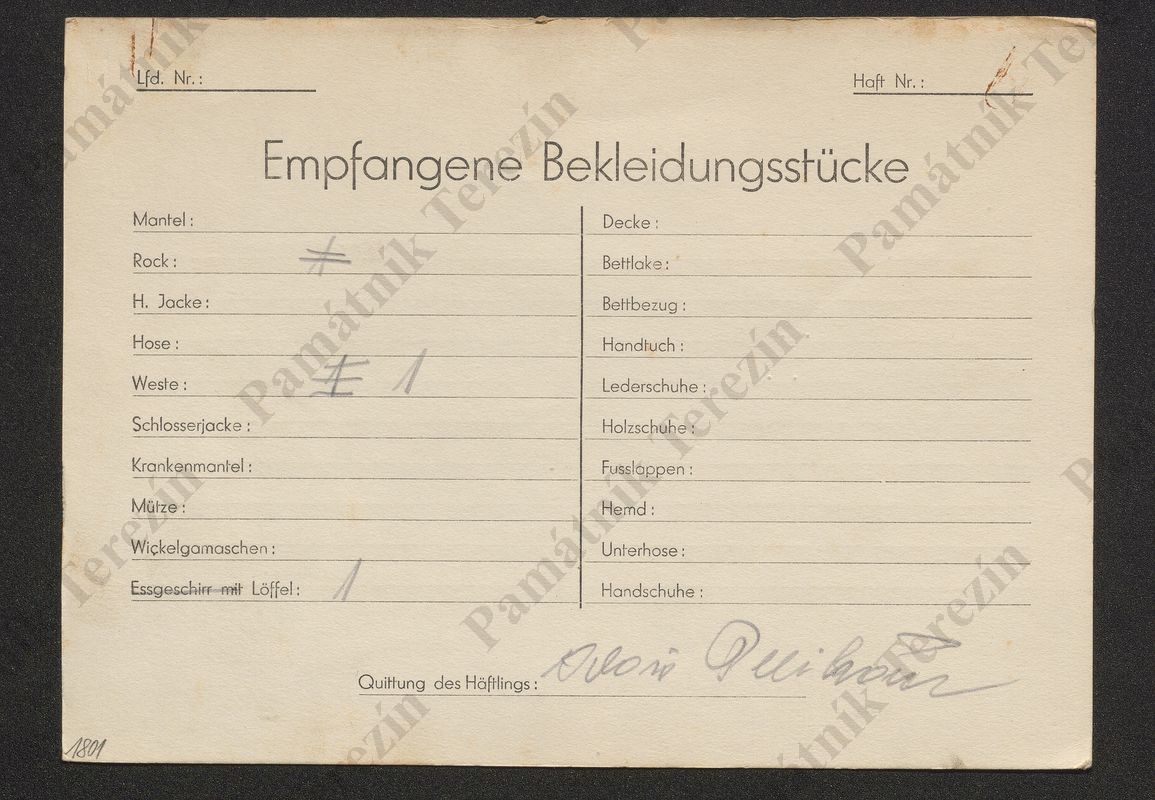 Lfd. Nr.:
Haft Nr.:
Empfangene Bekleidungsstücke
Mantel:
Rock:
H. Jacke:
Hose:
Weste: 1
Schlosserjacke:
Krankenmantel:
Mütze:
Wickelgamaschen:
Essgeschirr mit Löffel: 1
Decke:
Bettlake:
Bettbezug:
Handtuch:
Lederschuhe:
Holzschuhe:
Fusslappen:
Hemd:
Unterhose:
Handschuhe:
Quittung des Häftlings:
1801
Památník Terezín
Památník Terezín
Památník Terezín
Památník Terezín